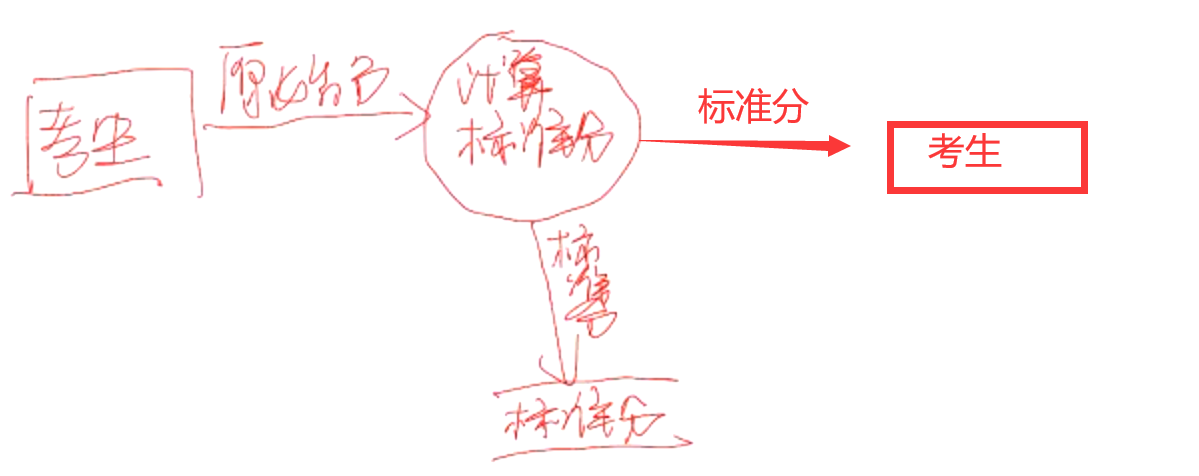 考生
原始分
计算
标准分
标准分
考生
标准分
标准分